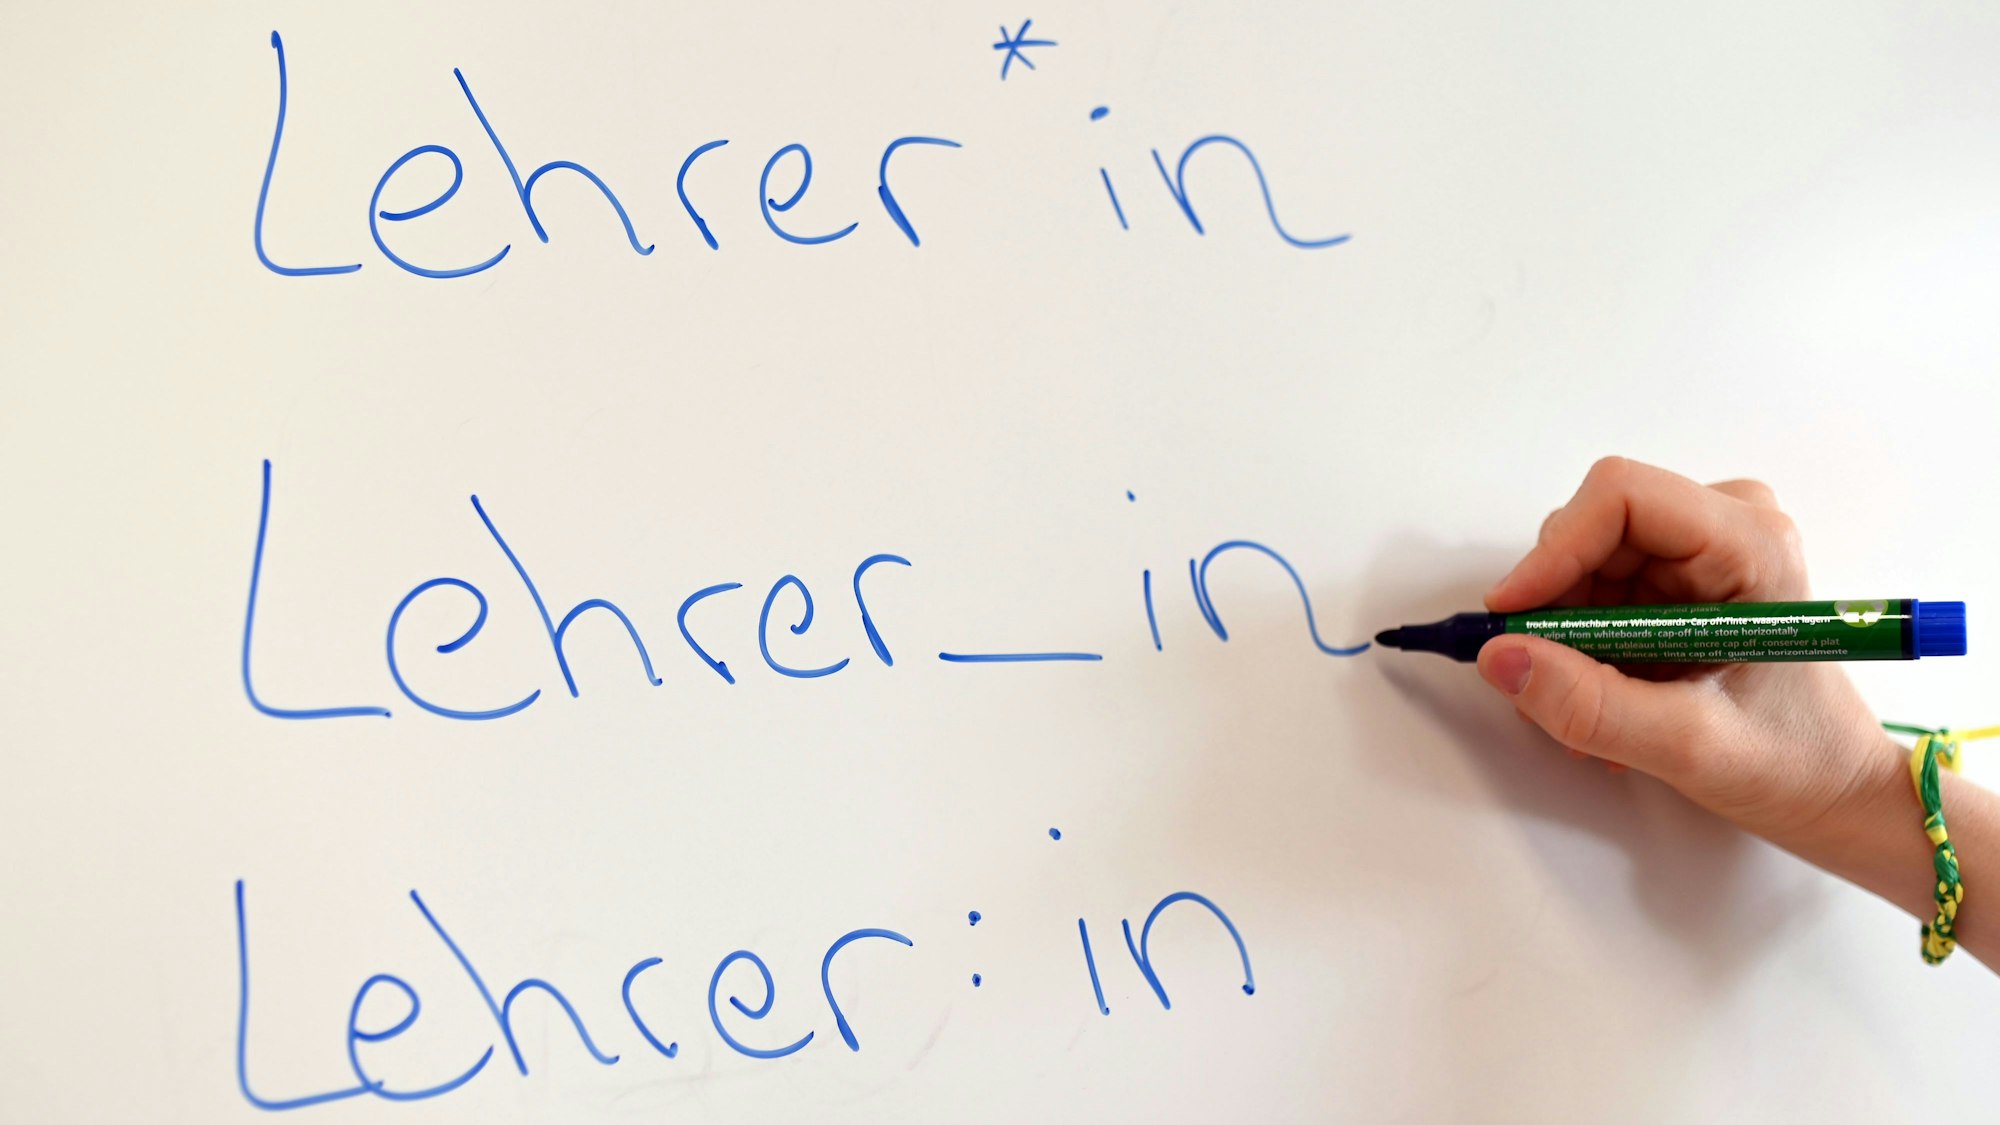 Lehrer*in
Lehrer_in
recycled plastic
trocken abwischbar von Whiteboards · Cap off-Tinte · waagrecht lagern
wipe from whiteboards · cap-off ink · store horizontally
sec sur tableaux blancs · encre cap off · conserver à plat
blancas · tinta cap off · guardar horizontalmente
Lehrer:in